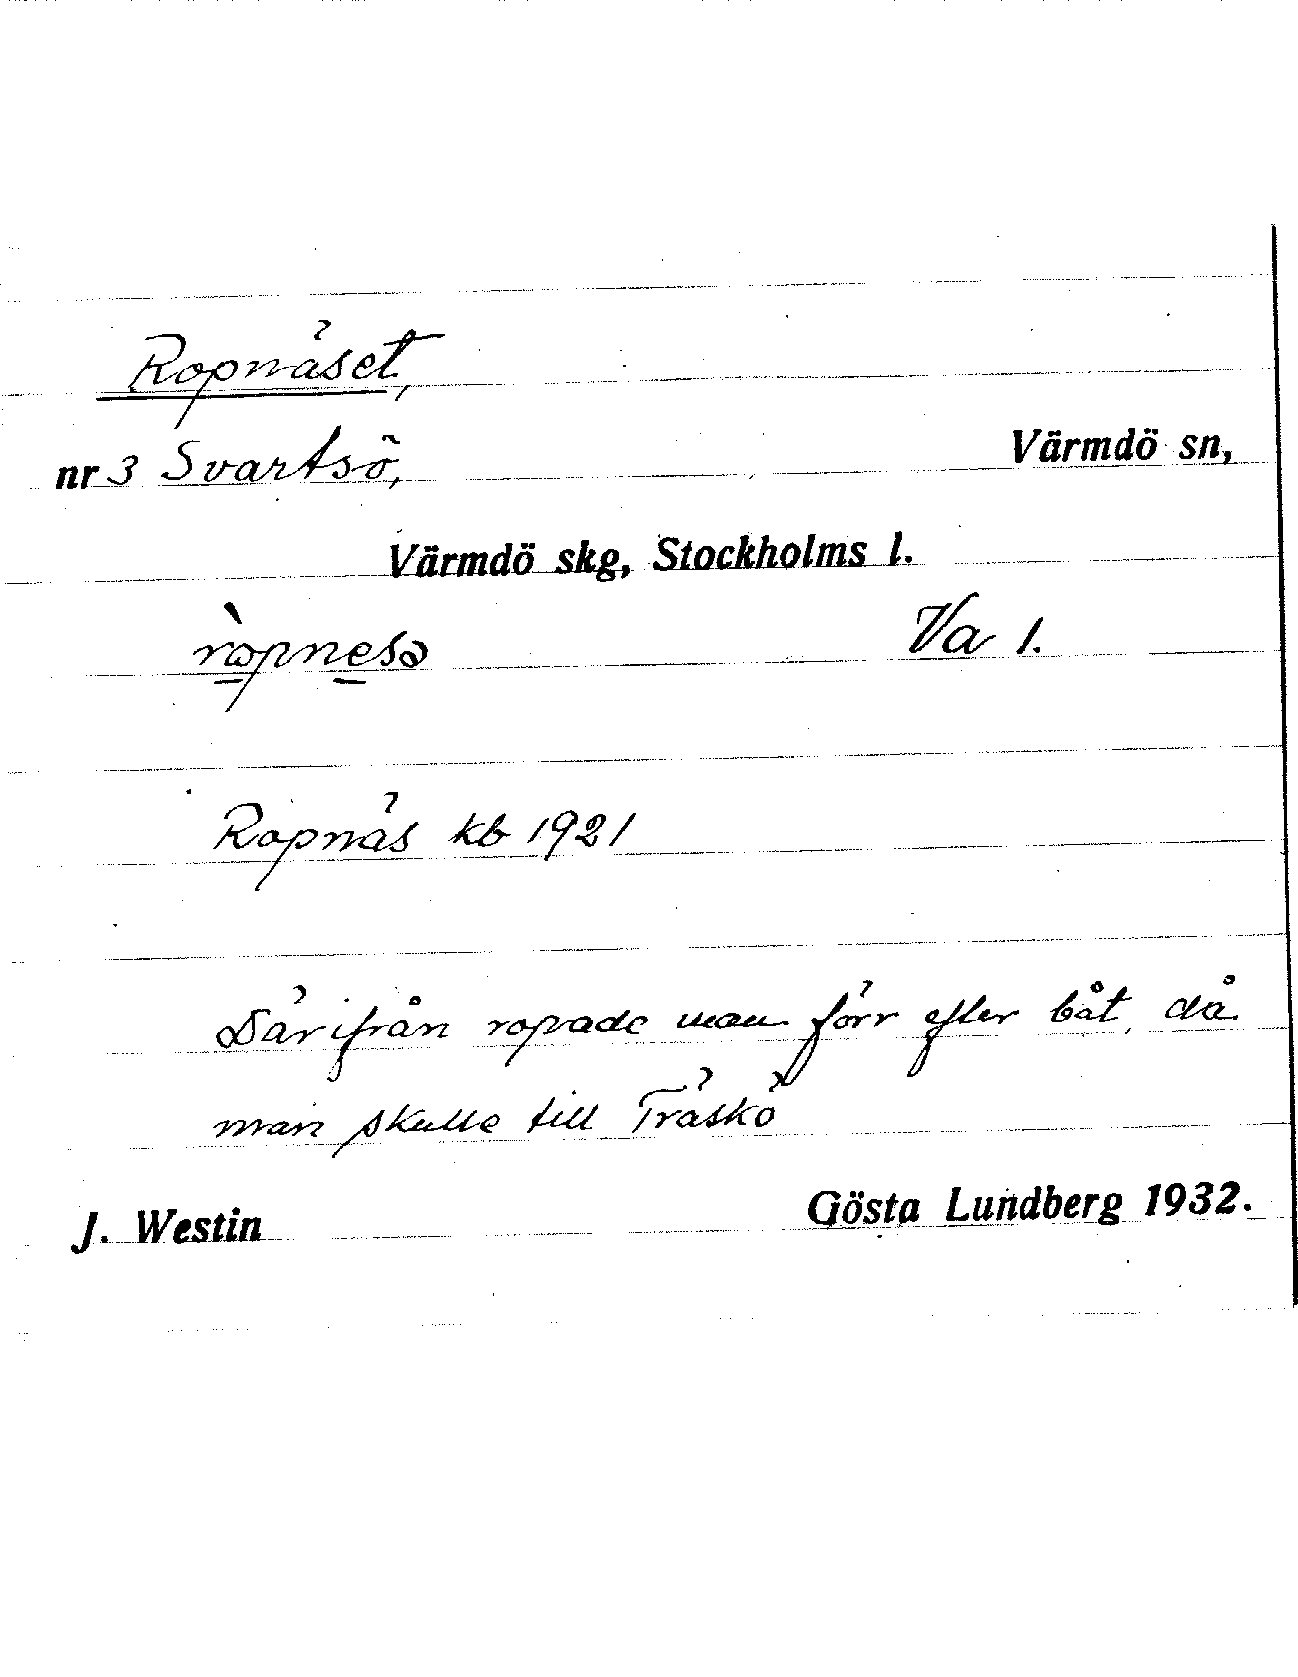 Ropnäset,
nr 3 Svartsö, Värmdö sn,
Värmdö skg, Stockholms l.
ròpnesə Va 1.
Ropnäs kb 1921
Därifrån ropade man förr efter båt, då
man skulle till Träskö
J. Westin Gösta Lundberg 1932.